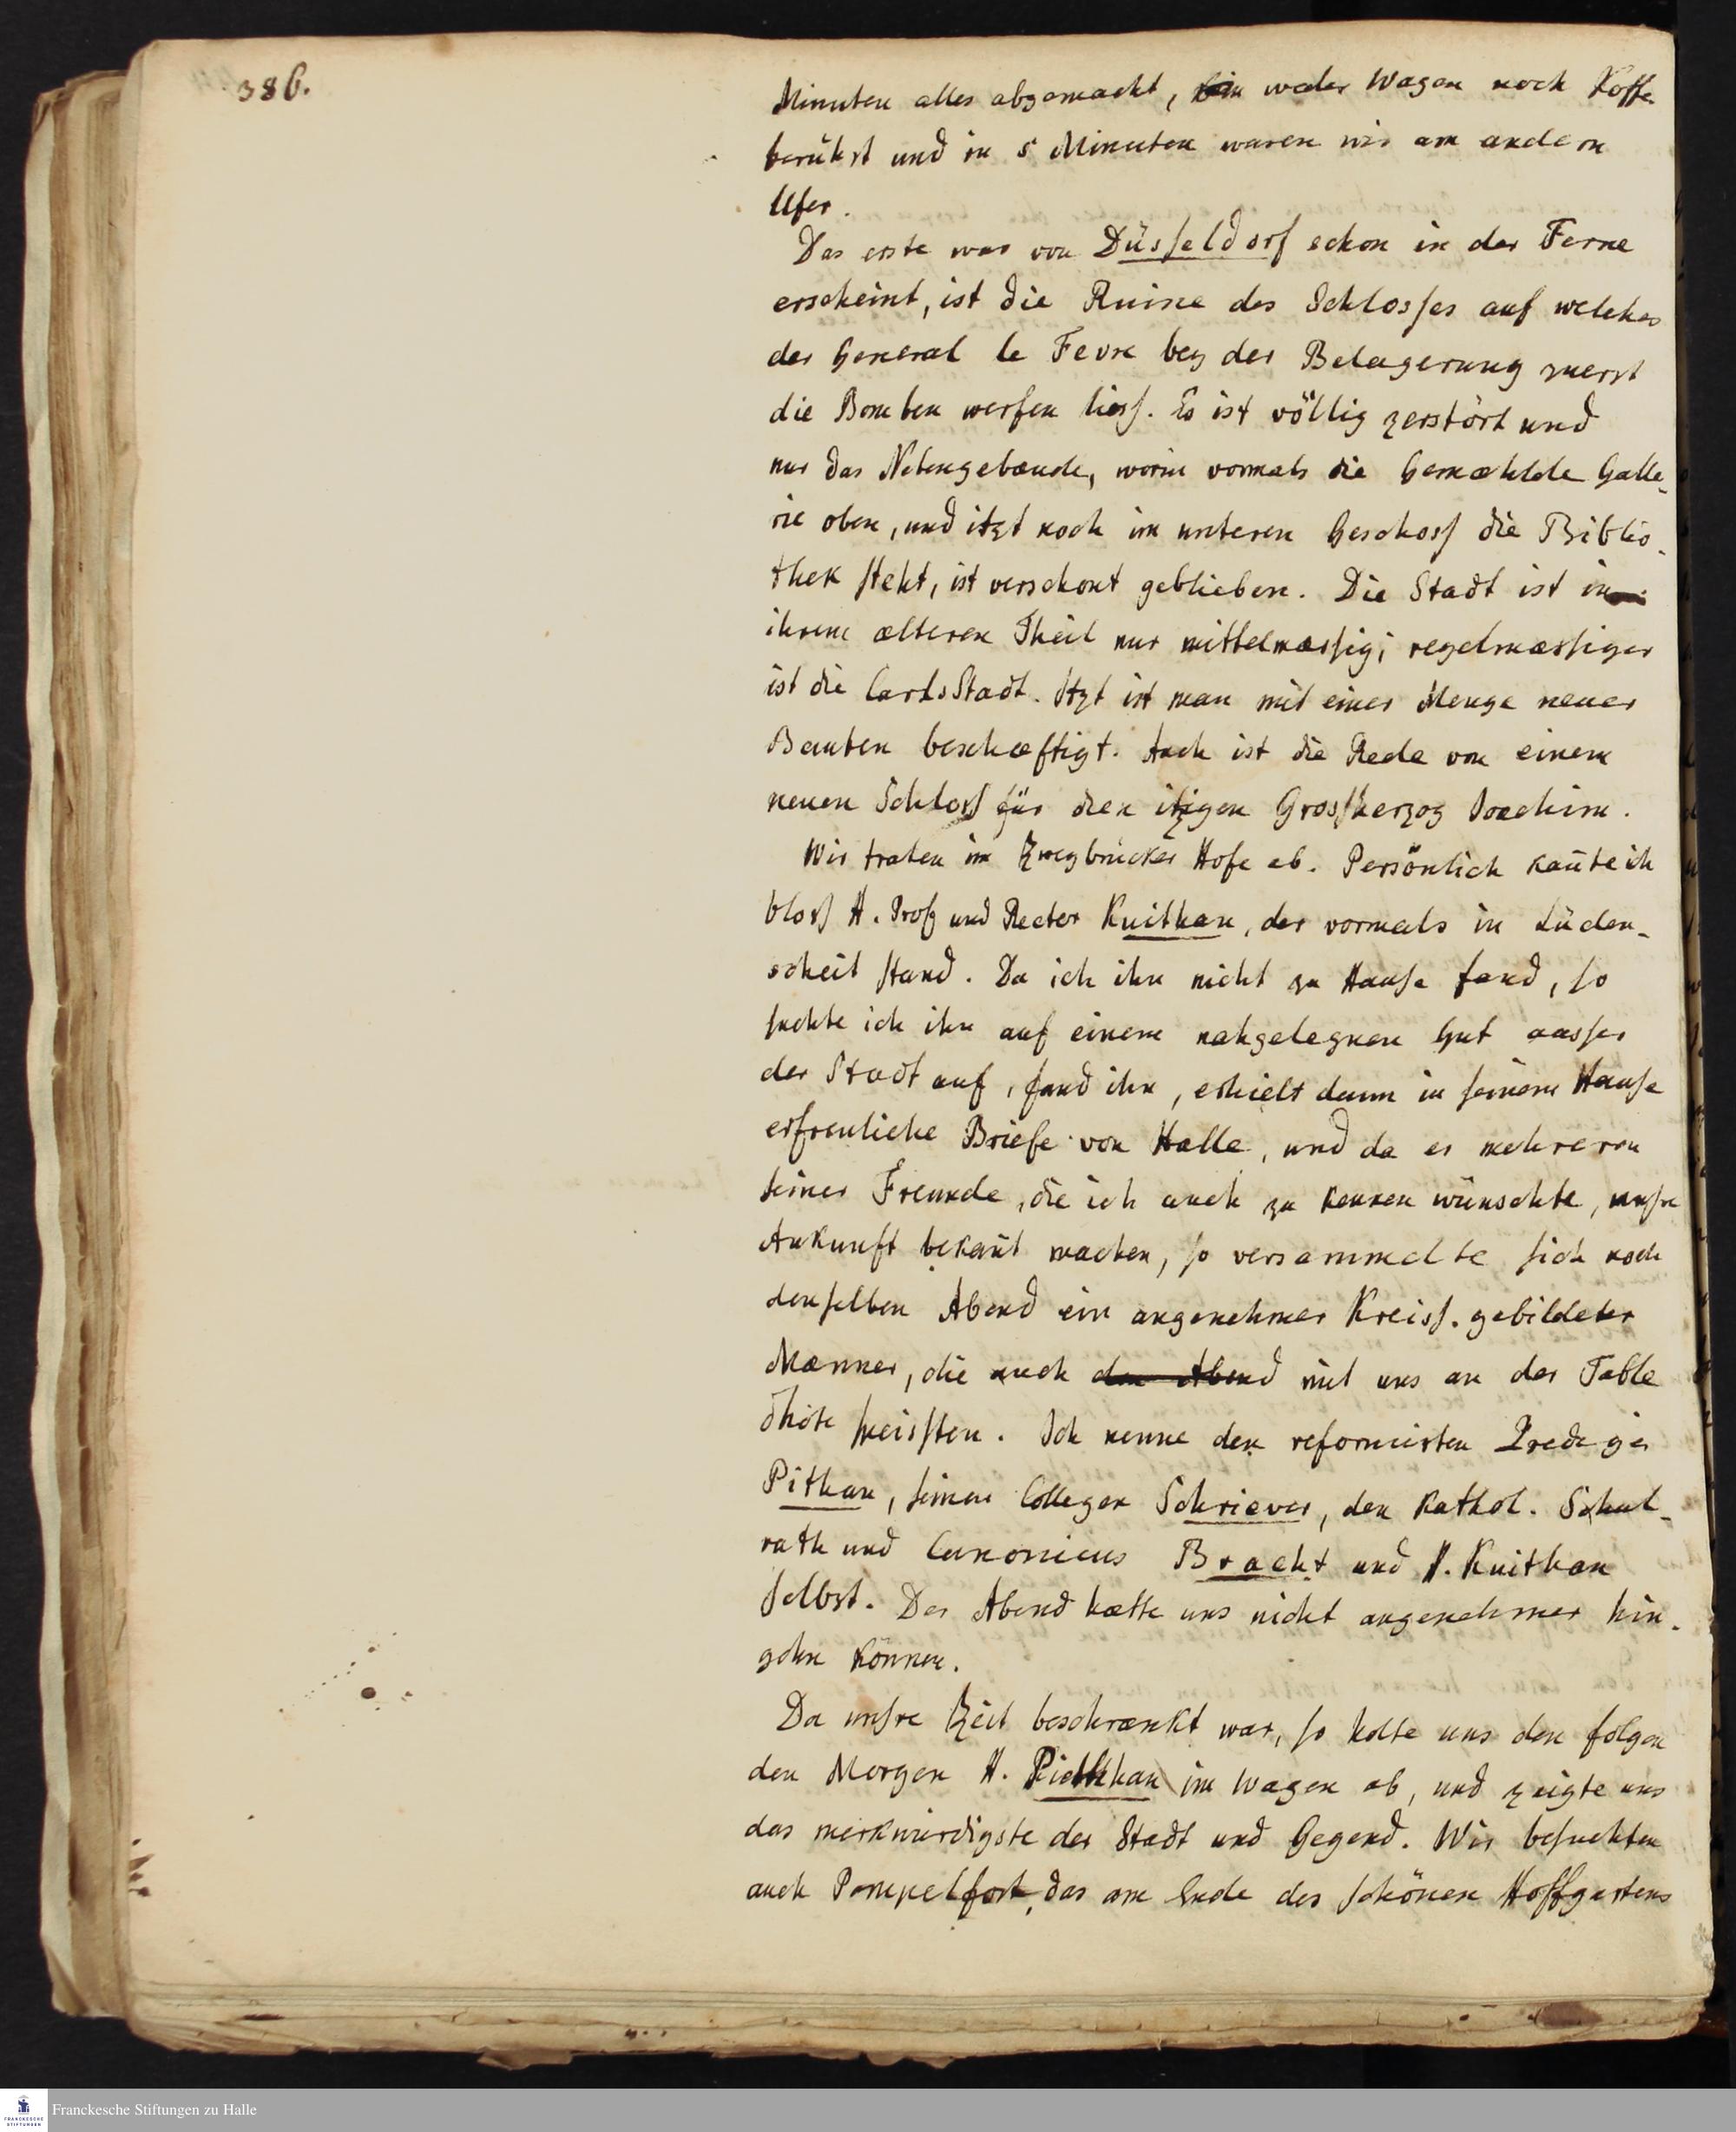 386.
Minuten alles abgemacht, weder Wagen noch Koffe
berührt und in 5 Minuten waren wir am andern
Ufer.
Das erste was von Düsseldorf schon in der Ferne
erscheint, ist die Ruine des Schlosses auf welches
der General le Fevre bey der Belagerung zuerst
die Bomben werfen liess. Es ist völlig zerstört und
nur das Nebengebæude, worin vormals die Gemæhlde Galle-
rie oben, und itzt noch im unteren Geschoss die Biblio-
thek steht, ist verschont geblieben. Die Stadt ist in
ihrem ælteren Theil nur mittelmæssig; regelmæssiger
ist die CarlsStadt. Itzt ist man mit einer Menge neuer
Bauten beschæftigt. Auch ist die Rede von einem
neuen Schloss für den itzigen Grossherzog Joachim.
Wir traten im Zweybrücker Hofe ab. Persönlich kan̄te ich
bloss H. Prof und Rector Kuithan, der vormals in Lüden-
scheit stand. Da ich ihn nicht zu Hause fand, so
suchte ich ihn auf einem nahgelegnen Gut ausser
der Stadt auf, fand ihn, erhielt dann in seinem Hause
erfreuliche Briefe von Halle, und da er mehreren
seiner Freunde, die ich auch zu kennen wünschte, unsre
Ankunft bekan̄t machen, so versammelte sich noch
denselben Abend ein angenehmer Kreiss. gebildeter
Mænner, die auch den Abend mit uns an der Table
dhôte speissten. Ich nenne den reformirten Prediger
Pithan, seinen Collegen Schriever, den Kathol. Schul-
rath und Canonicus Bracht und H. Kuithan
selbst. Der Abend hætte uns nicht angenehmer hin-
gehn können.
Da unsre Zeit beschrænkt war, so holte uns den folgen
den Morgen H. im Wagen ab, und zeigte uns
das merkwürdigste der Stadt und Gegend. Wir besuchten
auch Pempelfort, das am Ende des schönen Hoffgartens
Franckesche Stiftungen zu Halle
FRANCKESCHE
STIFTUNGEN